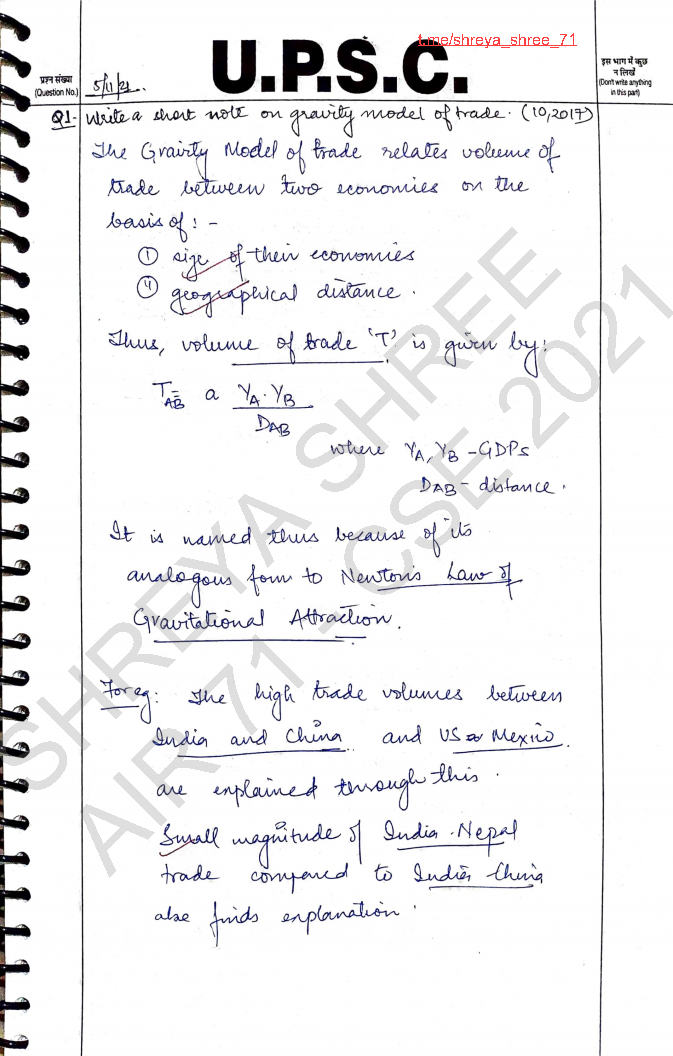 t.me/shreya_shree_71
U.P.S.C.
प्रश्न संख्या
(Question No.)
5/11/21.
इस भाग में कुछ
न लिखें
(Don't write anything
in this part)
Q1- Write a short note on gravity model of trade. (10,2017)
The Gravity Model of trade relates volume of
trade between two economies on the
basis of : -
① size of their economies
② geographical distance.
Thus, volume of trade 'T' is given by:
T_AB = a Y_A . Y_B
D_AB
where Y_A, Y_B - GDPs
D_AB - distance.
It is named thus because of its
analogous form to Newton's Law of
Gravitational Attraction.
For eg: The high trade volumes between
India and China and US & Mexico
are explained through this.
Small magnitude of India-Nepal
trade compared to India China
also finds explanation.
SHREYA SHREE
AIR 71 - CSE 2021